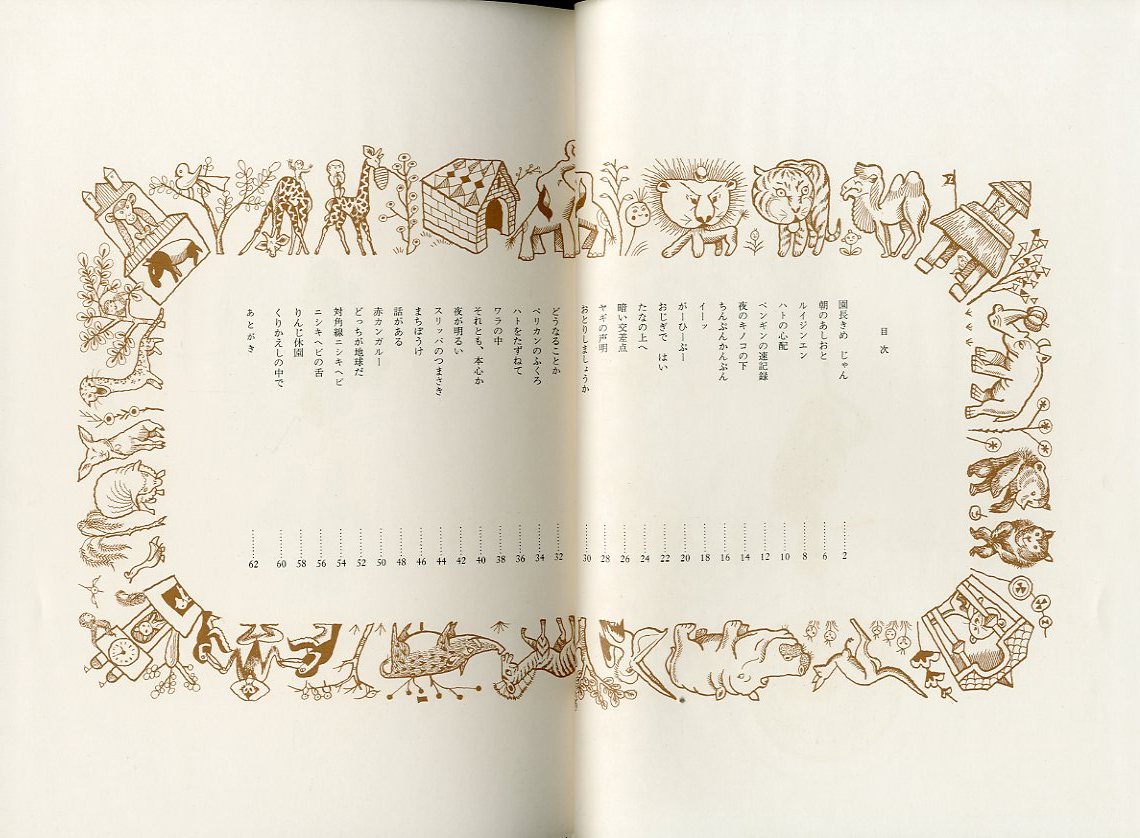 目次
園長きめ じゃん……2
朝のあしおと……6
ルイジンエン……8
ハトの心配……10
ペンギンの速記録……12
夜のキノコの下……14
ちんぷんかんぷん……16
イーッ……18
がーひーぷー……20
おじぎで はい……22
たなの上へ……24
暗い交差点……26
ヤギの声明……28
おとりしましょうか……30
どうなることか……32
ペリカンのふくろ……34
ハトをたずねて……36
ワラの中……38
それとも、本心か……40
夜が明るい……42
スリッパのつまさき……44
まちぼうけ……46
話がある……48
赤カンガルー……50
どっちが地球だ……52
対角線ニシキヘビ……54
ニシキヘビの舌……56
りんじ休園……58
くりかえしの中で……60
あとがき……62